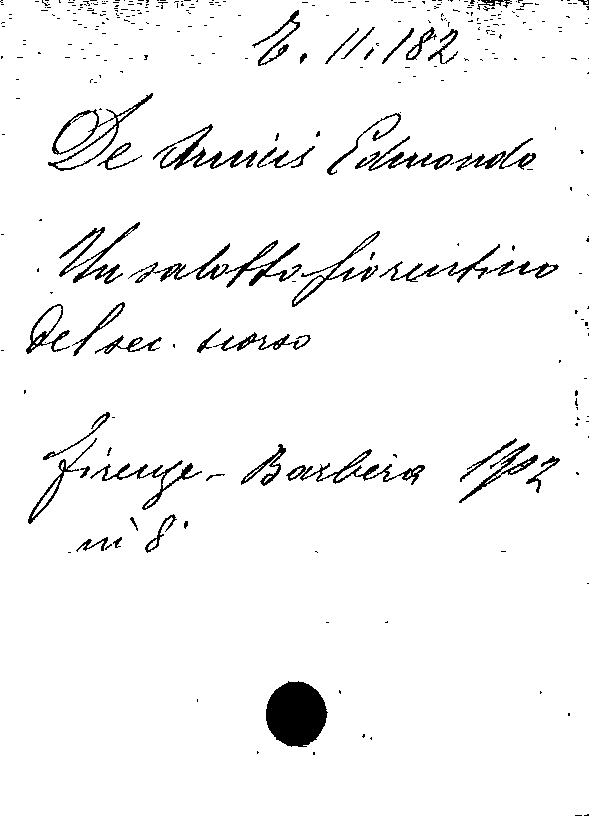 E. 11. 182
De Amicis Edmondo
Un salotto fiorentino
del sec. scorso
Firenze - Barbèra 1902
in 8°